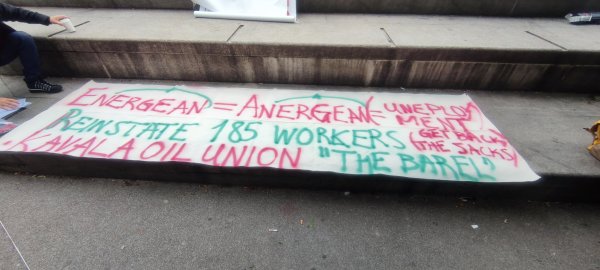 ENERGEAN = ANERGEAN (= UNEPLOY
MENT
REINSTATE 185 WORKERS (GET BACK
THE SACKS)
KAVALA OIL UNION "THE BAREL"